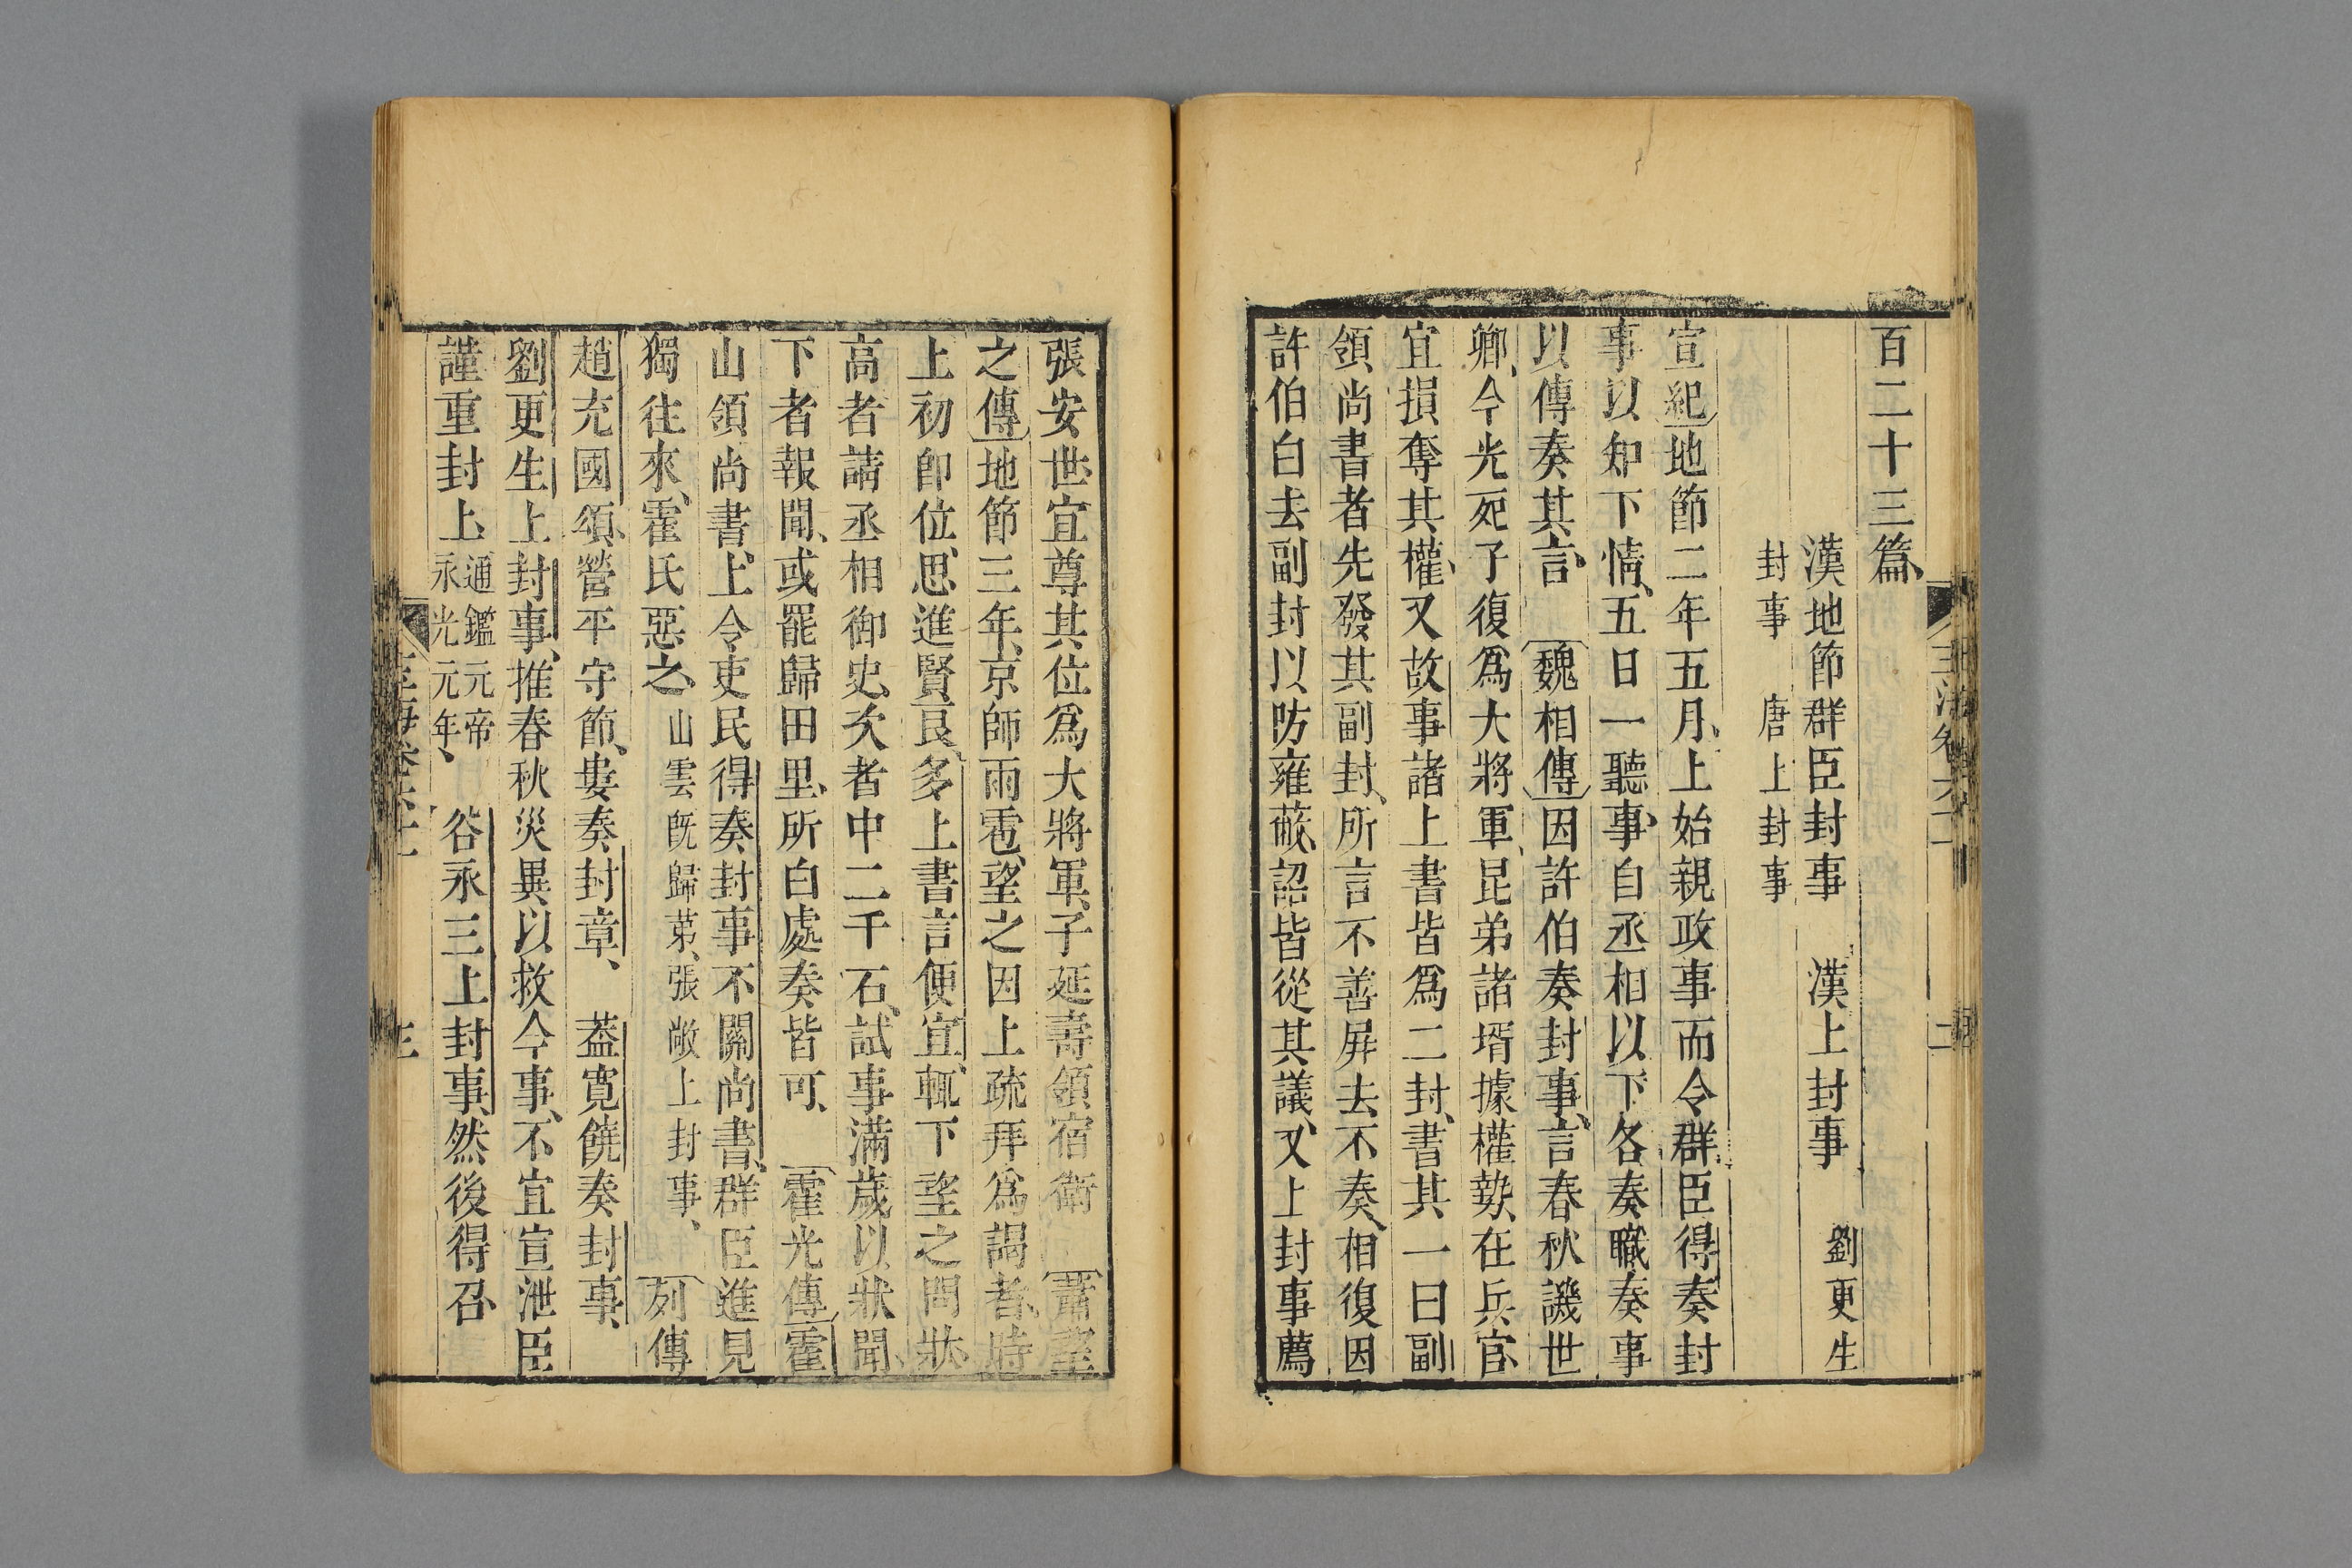 百二十三篇
漢地節群臣封事 漢上封事 劉更生
封事 唐上封事
宣紀地節二年五月上始親政事而令群臣得奏封
事以知下情五日一聽事自丞相以下各奏職奏事
以傳奏其言 魏相傳因許伯奏封事言春秋譏世
卿今光死子復爲大將軍昆弟諸壻據權埶在兵官
宜損奪其權又故事諸上書皆爲二封書其一曰副
領尚書者先發其副封所言不善屏去不奏相復因
許伯白去副封以防雍蔽詔皆從其議又上封事薦
張安世宜尊其位爲大將軍子延壽領宿衛 蕭望
之傳地節三年京師雨雹望之因上疏拜爲謁者時
上初卽位思進賢良多上書言便宜輒下望之問狀
高者請丞相御史次者中二千石試事滿歲以狀聞
下者報聞或罷歸田里所白處奏皆可 霍光傳霍
山領尚書上令吏民得奏封事不關尚書群臣進見
獨往來霍氏惡之山雲旣歸第張敞上封事 列傳
趙充國頌營平守節婁奏封章 葢寬饒奏封事
劉更生上封事推春秋災異以救今事不宜宣泄臣
謹重封上通鑑元帝永光元年 谷永三上封事然後得召